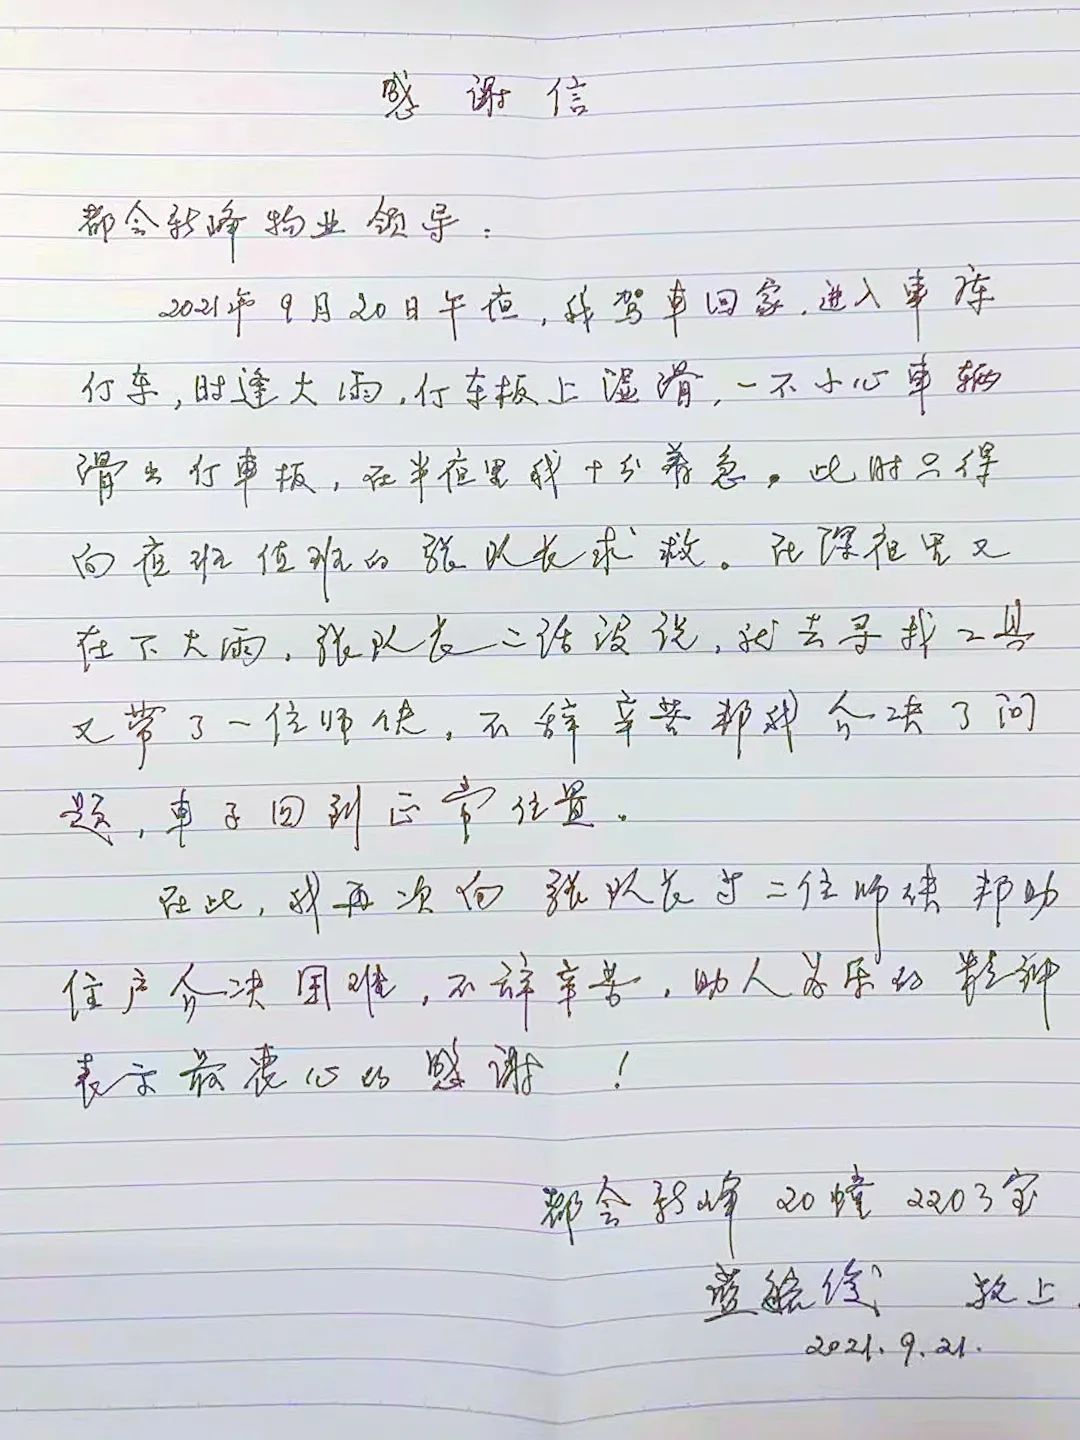 感谢信
都会新峰物业领导：
2021年9月20日午夜，我驾車回家，进入車库
行车，时逢大雨，行车板上湿滑，一不小心車辆
滑出行車板，在半夜里我十分着急。此时只得
向夜班值班的张队长求救。在深夜里又
在下大雨，张队长二话没说，就去寻找工具
又带了一位师傅，不辞辛苦帮我介决了问
题，車子回到正常位置。
在此，我再次向张队长等二位师傅帮助
住户介决困难，不辞辛苦，助人为乐的精神
表示最衷心的感谢！
都会新峰20幢2203室
蓝 俊 敬上.
2021.9.21.